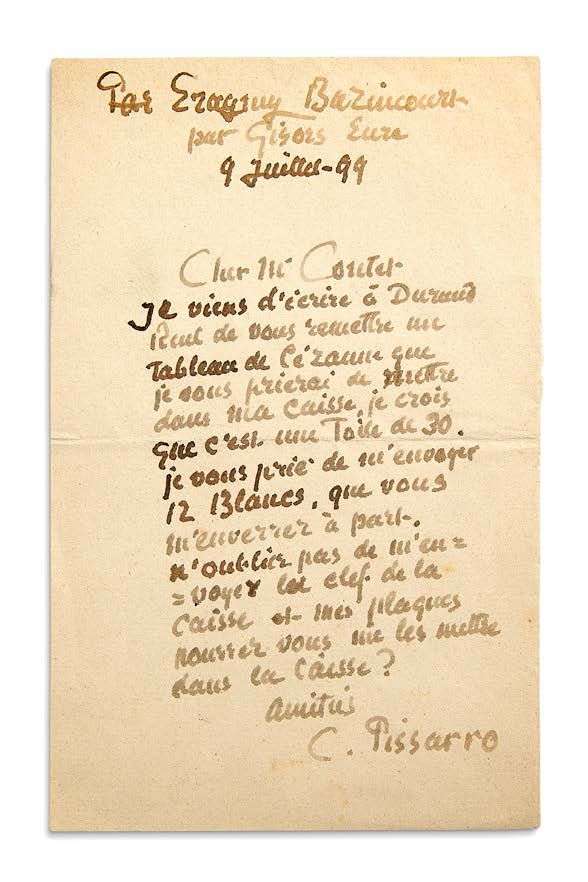 Par Eragny Bazincourt
par Gisors Eure
9 Juillet-99
Cher Mr Contet
Je viens d'écrire à Durand
Ruel de vous remettre un
Tableau de Cézanne que
je vous prierai de mettre
dans ma Caisse, je crois
que c'est une Toile de 30.
je vous prie de m'envoyer
12 Blancs, que vous
m'enverrez à part.
n'oubliez pas de m'en=
=voyer la clef de la
Caisse et mes plaques
pourrez vous me les mettre
dans la Caisse ?
Amitiés
C. Pissarro